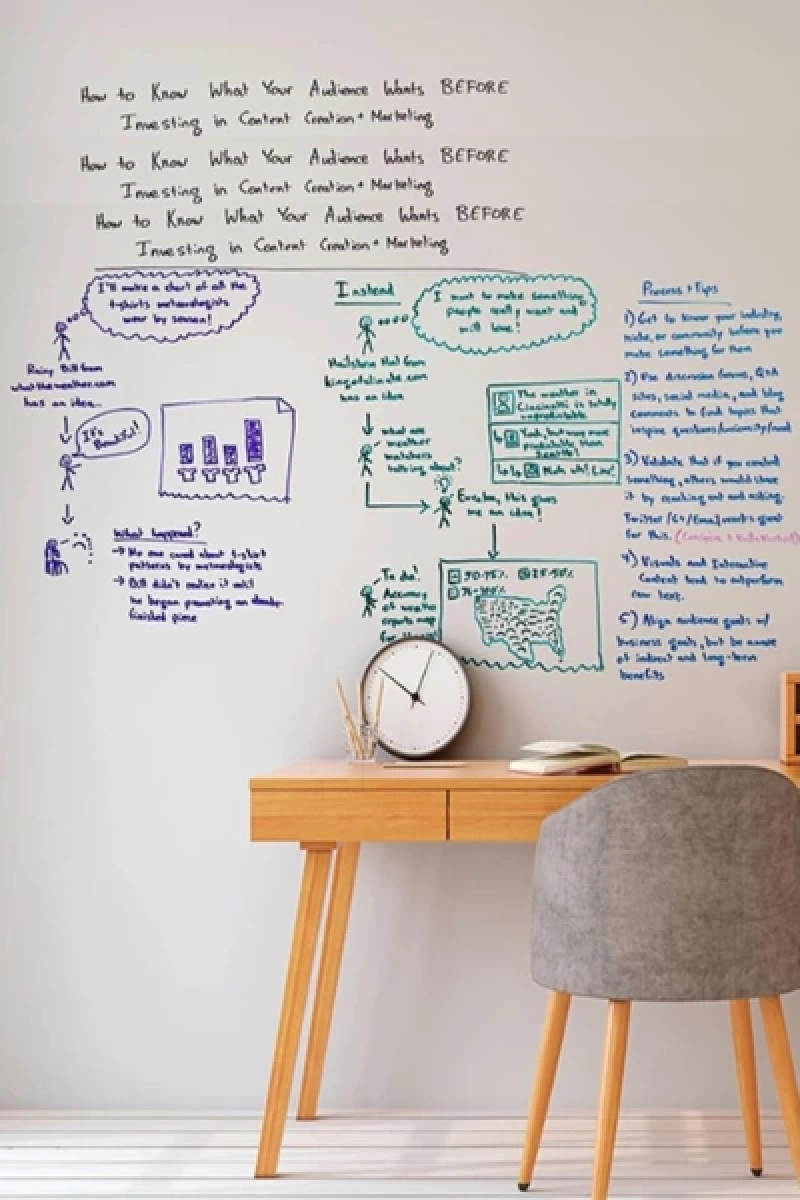 How to Know What Your Audience Wants BEFORE
Investing in Content Creation + Marketing
How to Know What Your Audience Wants BEFORE
Investing in Content Creation + Marketing
How to Know What Your Audience Wants BEFORE
Investing in Content Creation + Marketing
I'll make a chart of all the
t-shirts meteorologists
wear by season!
Rainy Bill from
whattheweather.com
has an idea...
It's
Beautiful!
What happened?
→ No one cared about t-shirt
patterns by meteorologists
→ Bill didn't realize it until
he began promoting an already-
finished piece
Instead
I want to make something
people really want and
will love!
Hailstorm Hal from
kingofclimate.com
has an idea
what are
weather
watchers
talking about?
The weather in
Cincinnatti is totally
unpredictable
Yeah, but way more
predictable than
Seattle!
Nuh uh! Liar!
Eureka, this gives
me an idea!
Ta da!
Accuracy
of weather
reports map
50-75%
25-50%
Process + Tips
1) Get to know your industry,
niche, or community before you
make something for them
2) Use discussion forums, Q+A
sites, social media, and blog
comments to find topics that
inspire questions/curiosity/need
3) Validate that if you created
something, others would share
it by reaching out and asking.
Twitter/G+/Email work great
for this.
4) Visuals and Interactive
Content tend to outperform
raw text.
5) Align audience goals w/
business goals, but be aware
of indirect and long-term
benefits